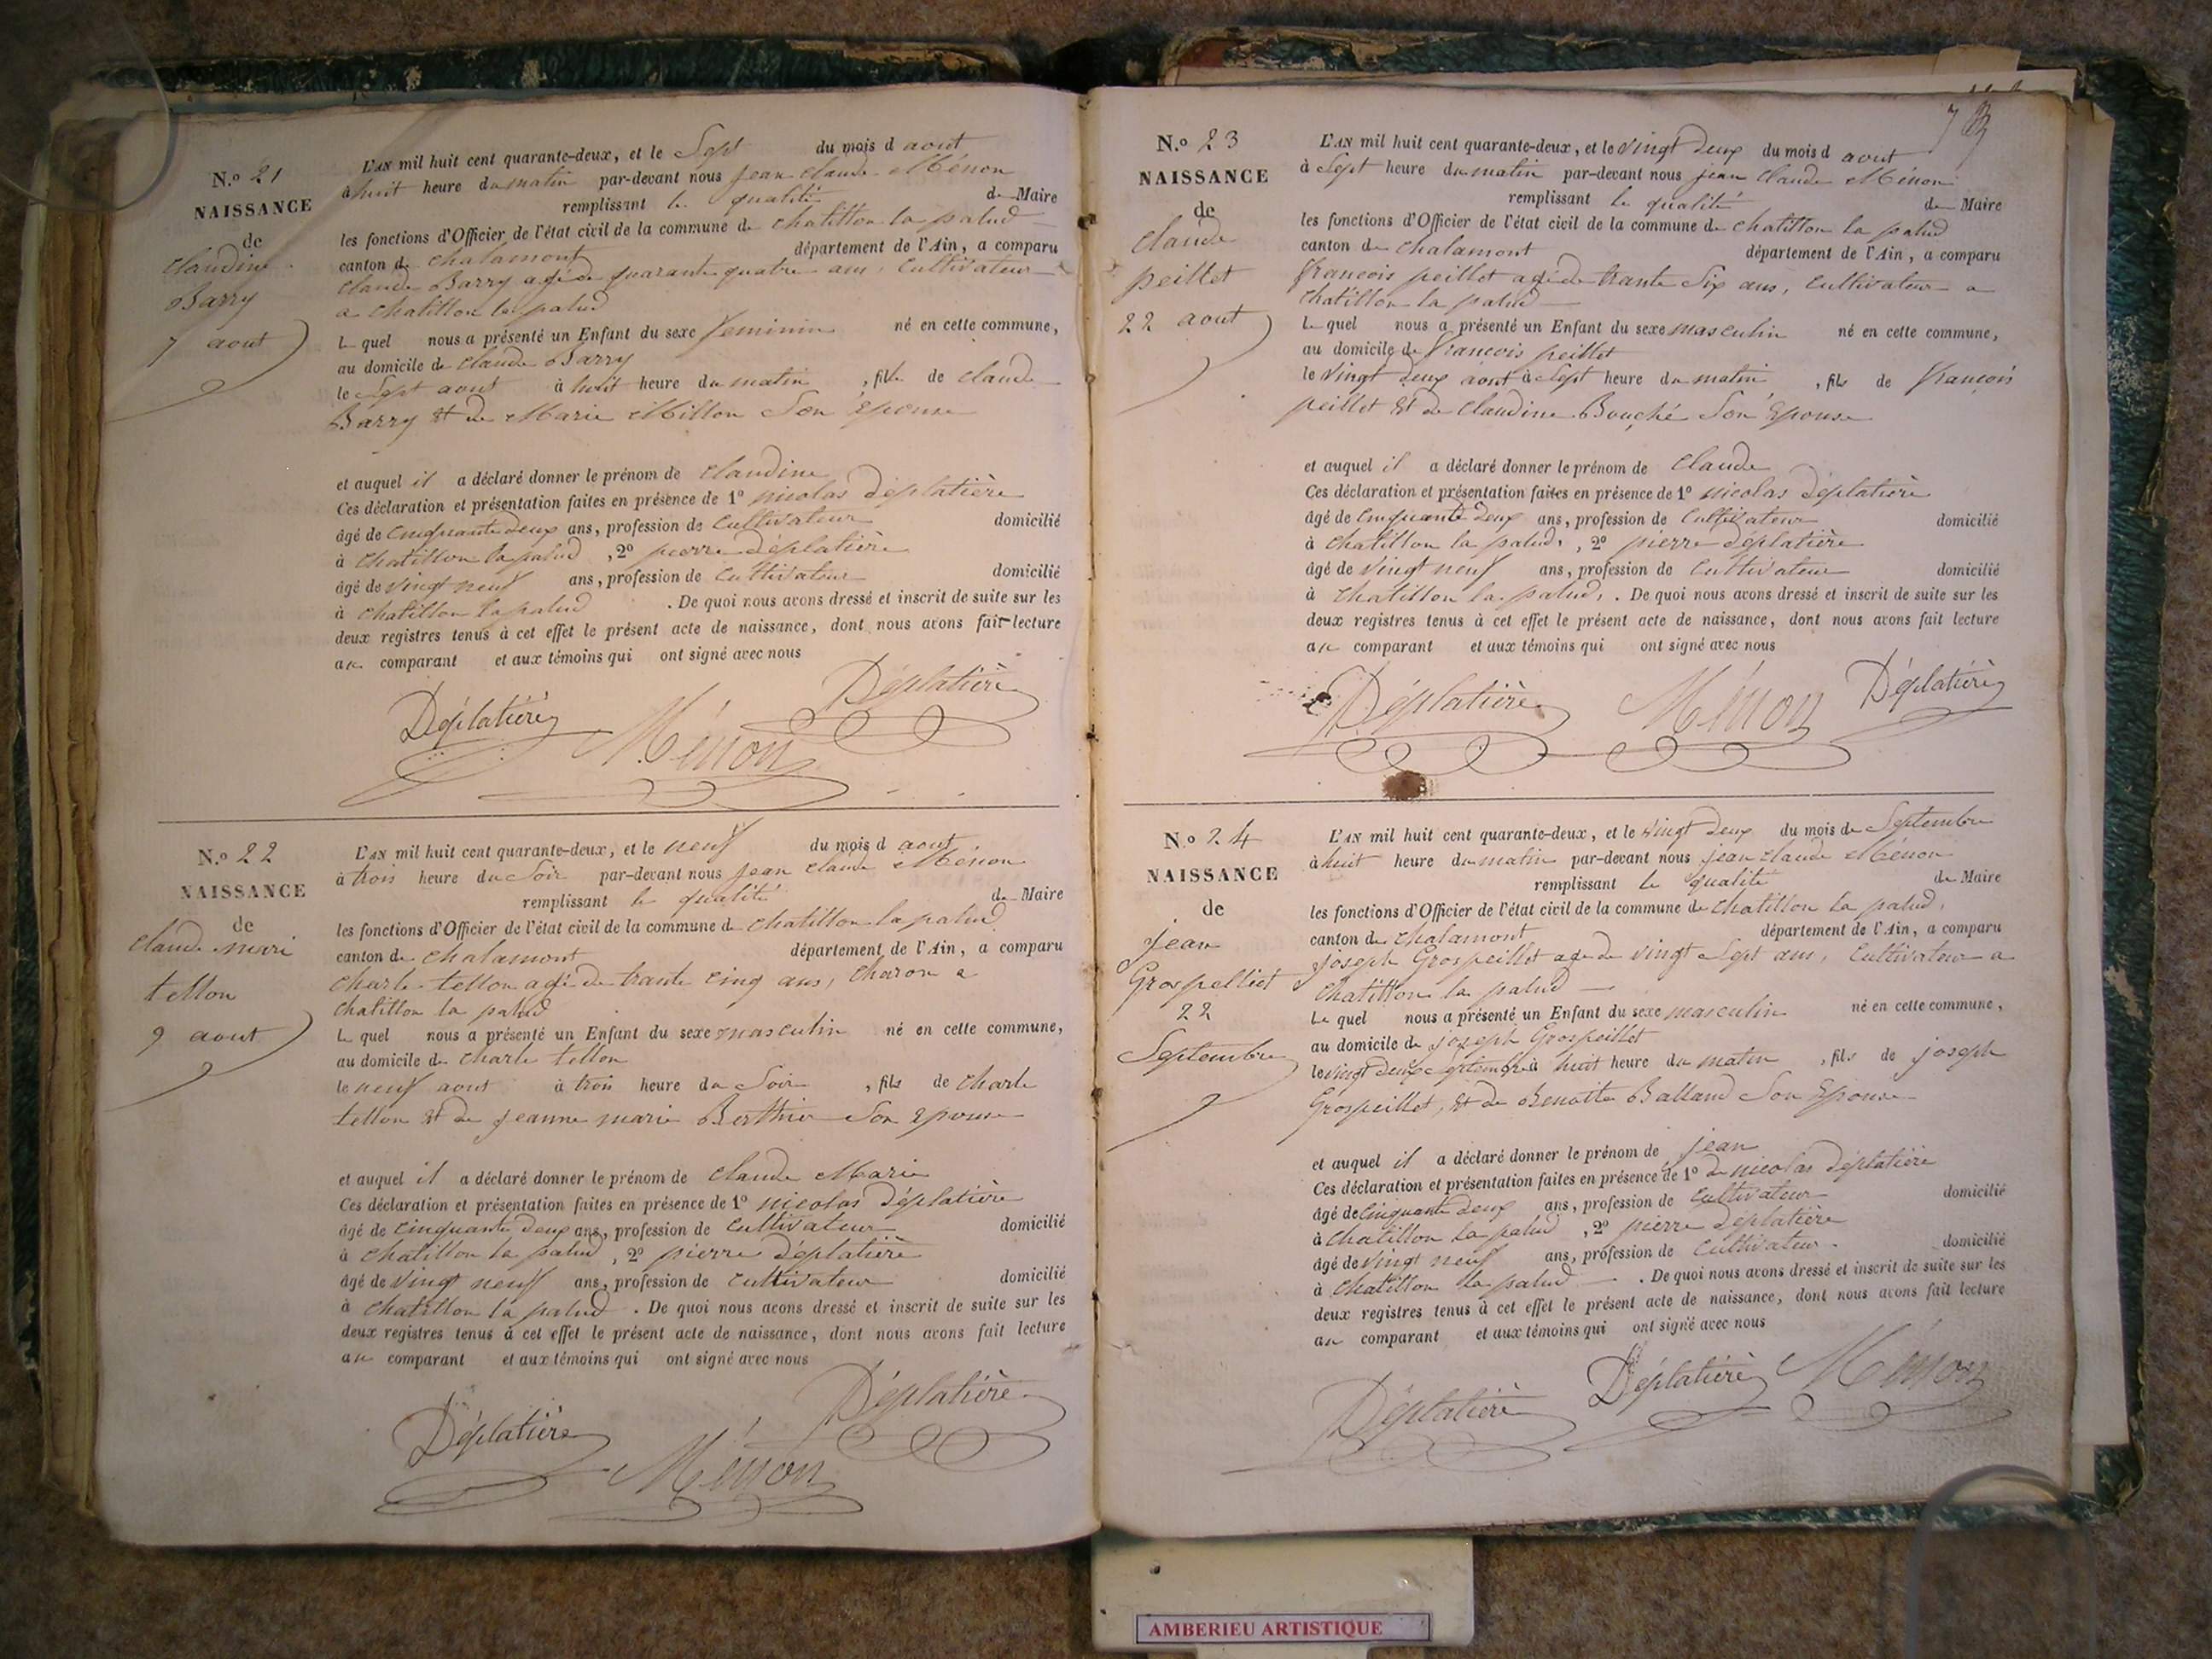 N.º 21
NAISSANCE
de
claudine
Barry
7 aout
L'AN mil huit cent quarante-deux, et le Sept du mois d aout
à huit heure du matin par-devant nous jean claude Ménon
remplissant le qualité de Maire
les fonctions d'Officier de l'état civil de la commune de chatillon la palud
canton de chalamont département de l'Ain, a comparu
claude Barry agé de quarante quatre ans, Cultivateur
a chatillon la palud
Le quel nous a présenté un Enfant du sexe feminin né en cette commune,
au domicile de claude Barry
le Sept aout à huit heure du matin, fille de claude
Barry Et de Marie Millon Son Epouse
et auquel il a déclaré donner le prénom de claudine
Ces déclaration et présentation faites en présence de 1º nicolas Déplatière
âgé de Cinquante deux ans, profession de Cultivateur domicilié
à chatillon la palud, 2º pierre déplatière
âgé de vingt neuf ans, profession de Cultivateur domicilié
à chatillon la palud. De quoi nous avons dressé et inscrit de suite sur les
deux registres tenus à cet effet le présent acte de naissance, dont nous avons fait lecture
au comparant et aux témoins qui ont signé avec nous
Déplatière Ménon Déplatière
N.º 22
NAISSANCE
de
claude mari
tellon
9 aout
L'AN mil huit cent quarante-deux, et le neuf du mois d aout
à trois heure du Soir par-devant nous jean claude Ménon
remplissant le qualité de Maire
les fonctions d'Officier de l'état civil de la commune de chatillon la palud
canton de chalamont département de l'Ain, a comparu
charle tellon agé de trante cinq ans, charon a
chatillon la palud
Le quel nous a présenté un Enfant du sexe masculin né en cette commune,
au domicile de charle tellon
le neuf aout à trois heure du Soir, fils de charle
tellon Et de jeanne marie Berthier Son Epouse
et auquel il a déclaré donner le prénom de claude Marie
Ces déclaration et présentation faites en présence de 1º nicolas Déplatière
âgé de cinquante deux ans, profession de cultivateur domicilié
à chatillon la palud, 2º pierre déplatière
âgé de vingt neuf ans, profession de cultivateur domicilié
à chatillon la palud. De quoi nous avons dressé et inscrit de suite sur les
deux registres tenus à cet effet le présent acte de naissance, dont nous avons fait lecture
au comparant et aux témoins qui ont signé avec nous
Déplatière Ménon Déplatière
N.º 23
NAISSANCE
de
claude
peillet
22 aout
L'AN mil huit cent quarante-deux, et le vingt deux du mois d aout
à Sept heure du matin par-devant nous jean claude Ménon
remplissant le qualité de Maire
les fonctions d'Officier de l'état civil de la commune de chatillon la palud
canton de chalamont département de l'Ain, a comparu
francois peillet agé de trante Six ans, Cultivateur a
chatillon la palud
Le quel nous a présenté un Enfant du sexe masculin né en cette commune,
au domicile de francois peillet
le vingt deux aout à Sept heure du matin, fils de francois
peillet Et de claudine Bouché Son Epouse
et auquel il a déclaré donner le prénom de claude
Ces déclaration et présentation faites en présence de 1º nicolas Déplatière
âgé de Cinquante deux ans, profession de Cultivateur domicilié
à chatillon la palud, 2º pierre déplatière
âgé de vingt neuf ans, profession de Cultivateur domicilié
à chatillon la palud. De quoi nous avons dressé et inscrit de suite sur les
deux registres tenus à cet effet le présent acte de naissance, dont nous avons fait lecture
au comparant et aux témoins qui ont signé avec nous
Déplatière Ménon Déplatière
N.º 24
NAISSANCE
de
jean
Grospelliet
22
Septembre
L'AN mil huit cent quarante-deux, et le vingt deux du mois de Septembre
à huit heure du matin par-devant nous jean claude Ménon
remplissant le qualité de Maire
les fonctions d'Officier de l'état civil de la commune de chatillon la palud,
canton de chalamont département de l'Ain, a comparu
joseph Grospeillet agé de vingt Sept ans, Cultivateur a
chatillon la palud
Le quel nous a présenté un Enfant du sexe masculin né en cette commune,
au domicile de joseph Grospeillet
le vingt deux Septembre à huit heure du matin, fils de joseph
Grospeillet, Et de Benoitte Balland Son Epouse
et auquel il a déclaré donner le prénom de jean
Ces déclaration et présentation faites en présence de 1º de nicolas déplatière
âgé de Cinquante deux ans, profession de Cultivateur domicilié
à chatillon la palud, 2º pierre déplatière
âgé de vingt neuf ans, profession de Cultivateur domicilié
à chatillon la palud. De quoi nous avons dressé et inscrit de suite sur les
deux registres tenus à cet effet le présent acte de naissance, dont nous avons fait lecture
au comparant et aux témoins qui ont signé avec nous
Déplatière Déplatière Ménon
AMBERIEU ARTISTIQUE